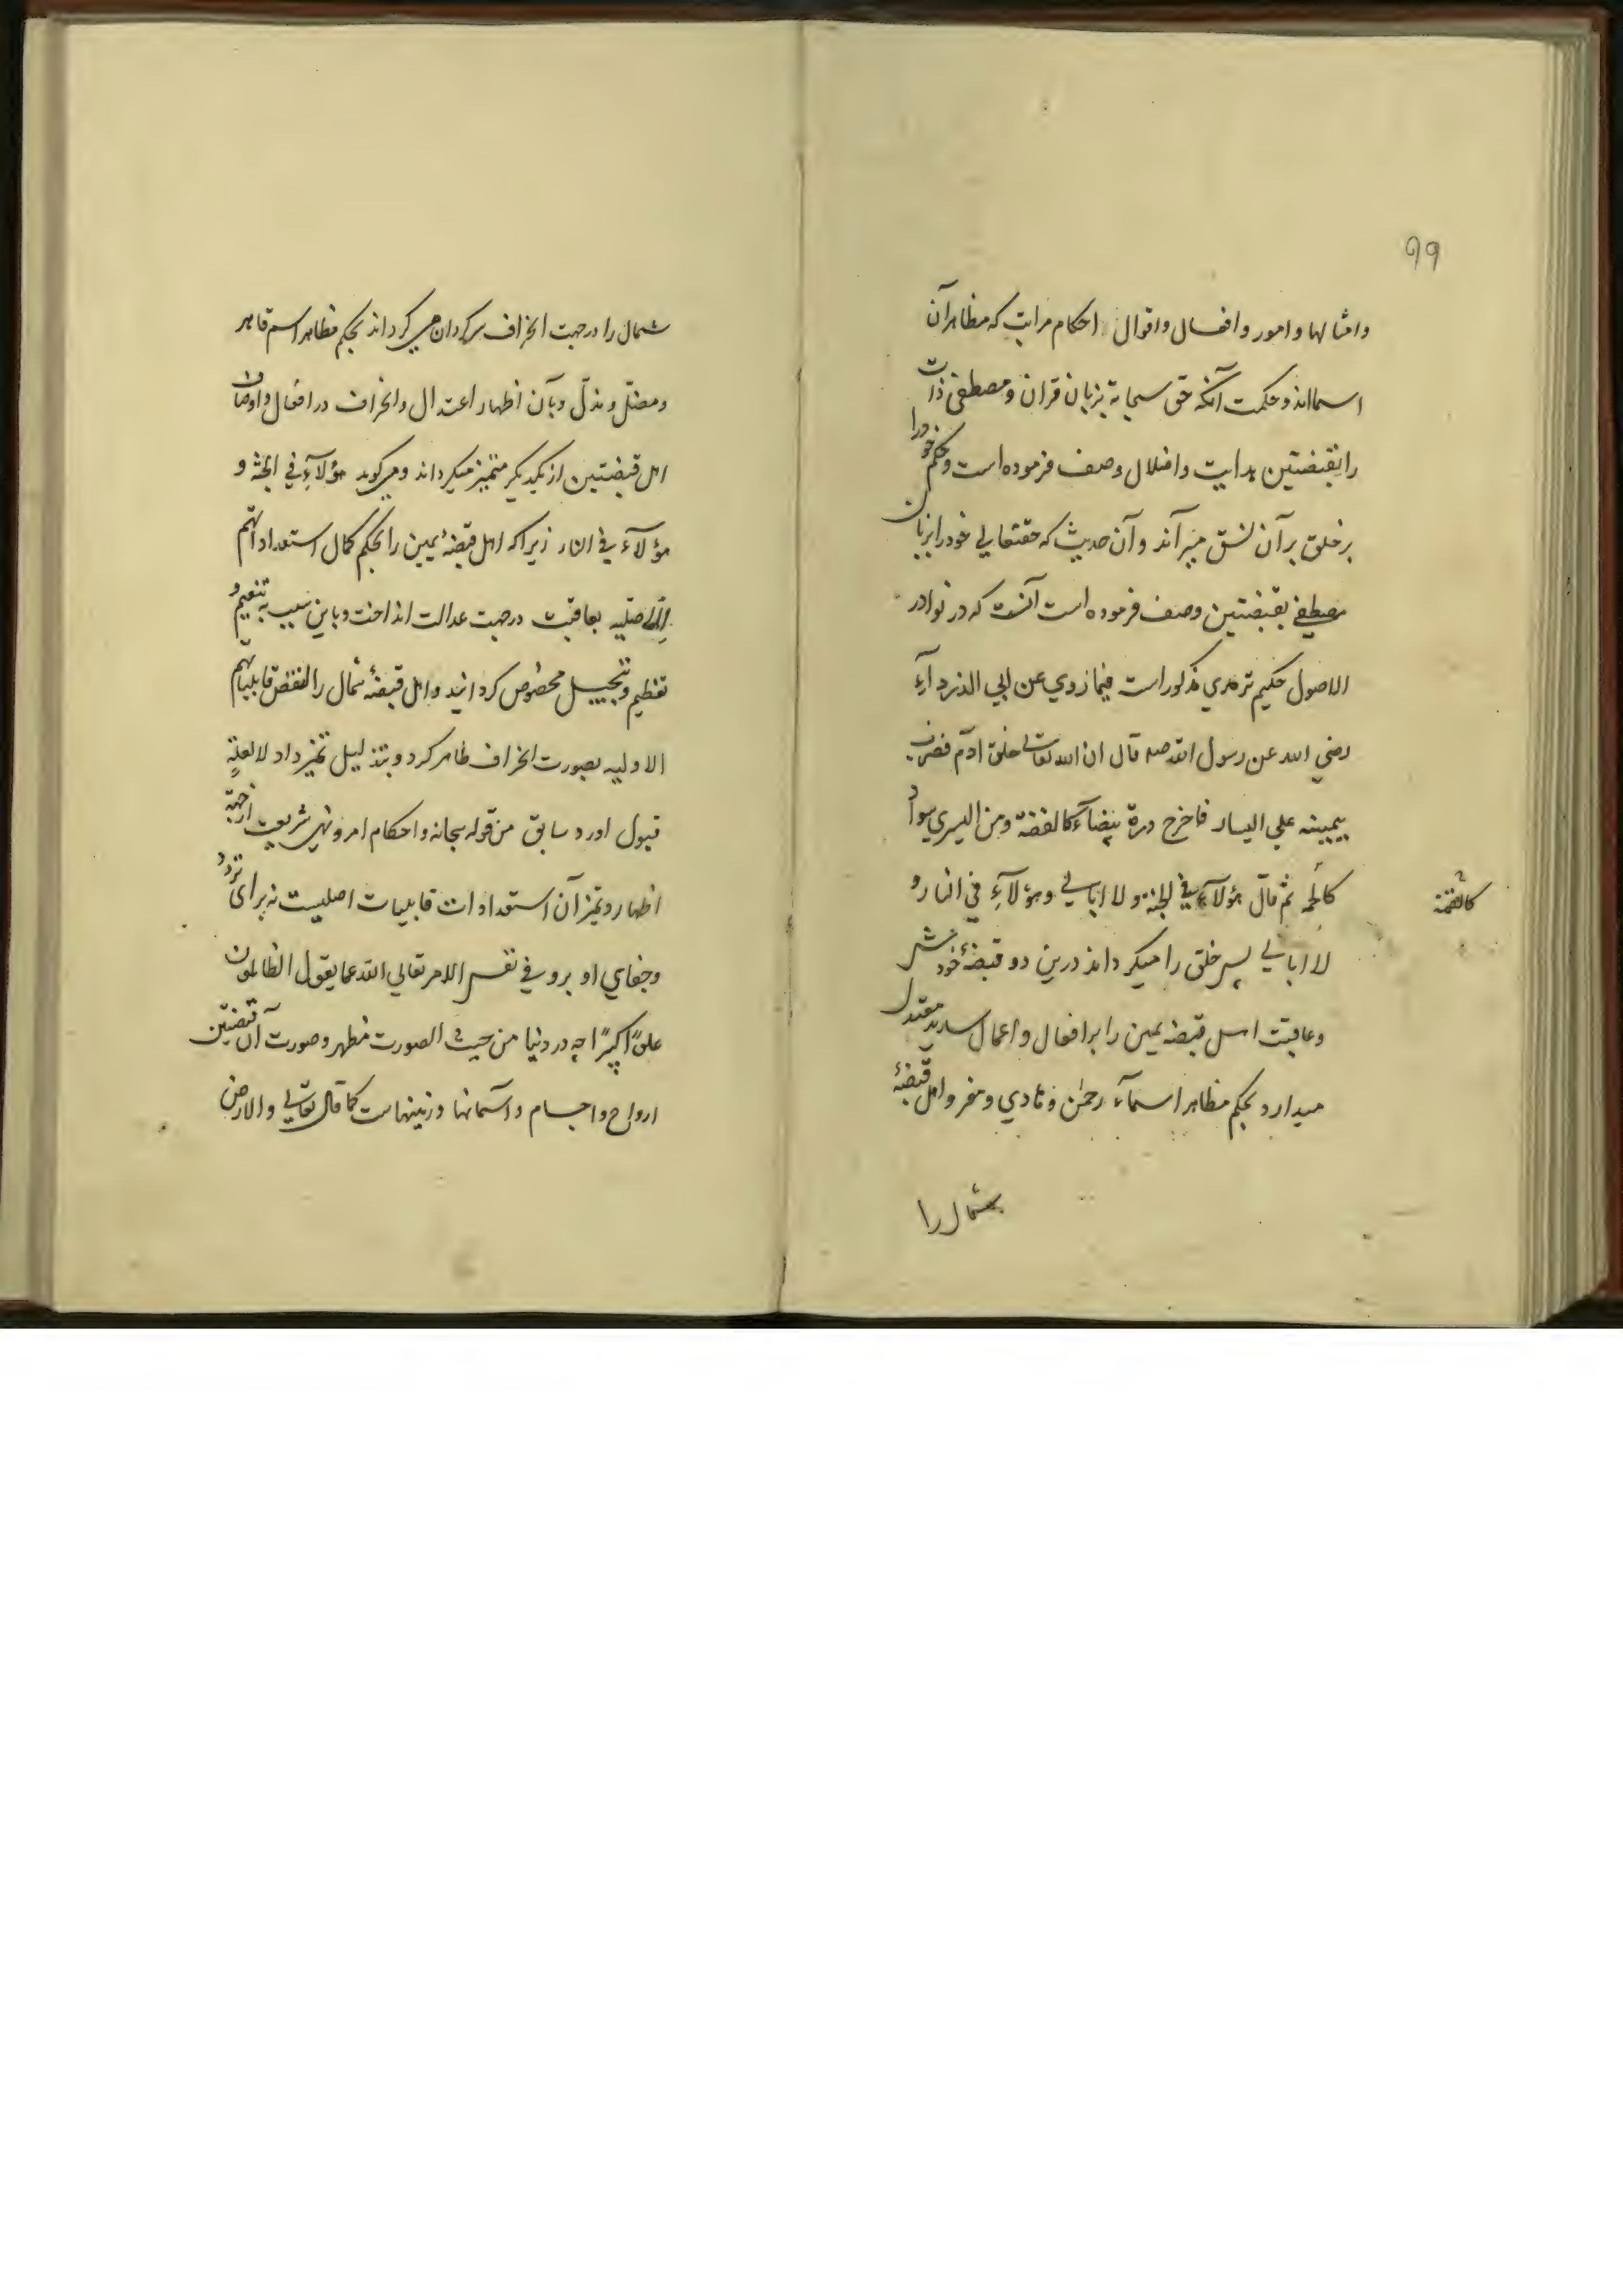 ۹۹
وامثالها و امور و افعال و اقوال احکام مراتب که مظاهر آن
اسمااند و حکمت آنکه حق سبحانه بزبان قران و مصطفی ذات
را بقبضتین هدایت و اضلال وصف فرموده است و حکم خود را
بر خلق بر آن نسق میراند و آن حدیث که حقتعالی خود را بزبان
مصطفی بقبضتین وصف فرموده است آنست که در نوادر
الاصول حکیم ترمدی مذکور است فیما روی عن ابی الدردآء
رضی الله عن رسول الله صلم قال ان الله تعالی خلق ادم فضرب
بیمینه علی الیسار فاخرج درة بیضآء کالفضة و من الیسری سوآد
کالحمه ثم قال هؤلآء فی الجنة ولا ابالی وهؤلآء فی النار و
کالفحمة
لا ابالی پس خلق را میکرداند درین دو قبضهٔ خود
وعاقبت اهل قبضه یمین را بر افعال و اعمال معتدل
میدارد بحکم مظاهر اسمآء رحمن و هادی و معز و اهل قبضهٔ
شمال را
شمال را در جهت انحراف سرکردان می کرداند بحکم مظاهر اسم قاهر
ومضلّ و مذلّ و بآن اظهار اعتدال و انحراف در افعال و اوصاف
اهل قبضتین از یکدیکر متمیز میکرداند و میکوید هؤلآء فی الجنة و
هؤلآء فی النار زیرا که اهل قبضهٔ یمین را بحکم کمال استعداداتهم
الاصلیه بعاقبت در جهت عدالت انداخت و باین سبب به تنعیم و
تعظیم و تبجیل مخصوص کردانید و اهل قبضهٔ شمال را لنقض قابلیاتهم
الاولیه بصورت انحراف ظاهر کرد و بتذلیل تمیز داد لا لعلةٍ
قبول او رد سابق من قوله سبحانه و احکام امر و نهی شریعت از جهة
اظهار و تمیز آن استعدادات قابلیات اصلیست نه برای تردد
وجفای او برو فی نفس الامر تعالی الله عما یقول الظالمون
علوًا کبیرًا چه در دنیا من حیث الصورت مظهر و صورت آن قبضتین
ارواح و اجسام و آسمانها و زمینهاست کما قال تعالی والارض